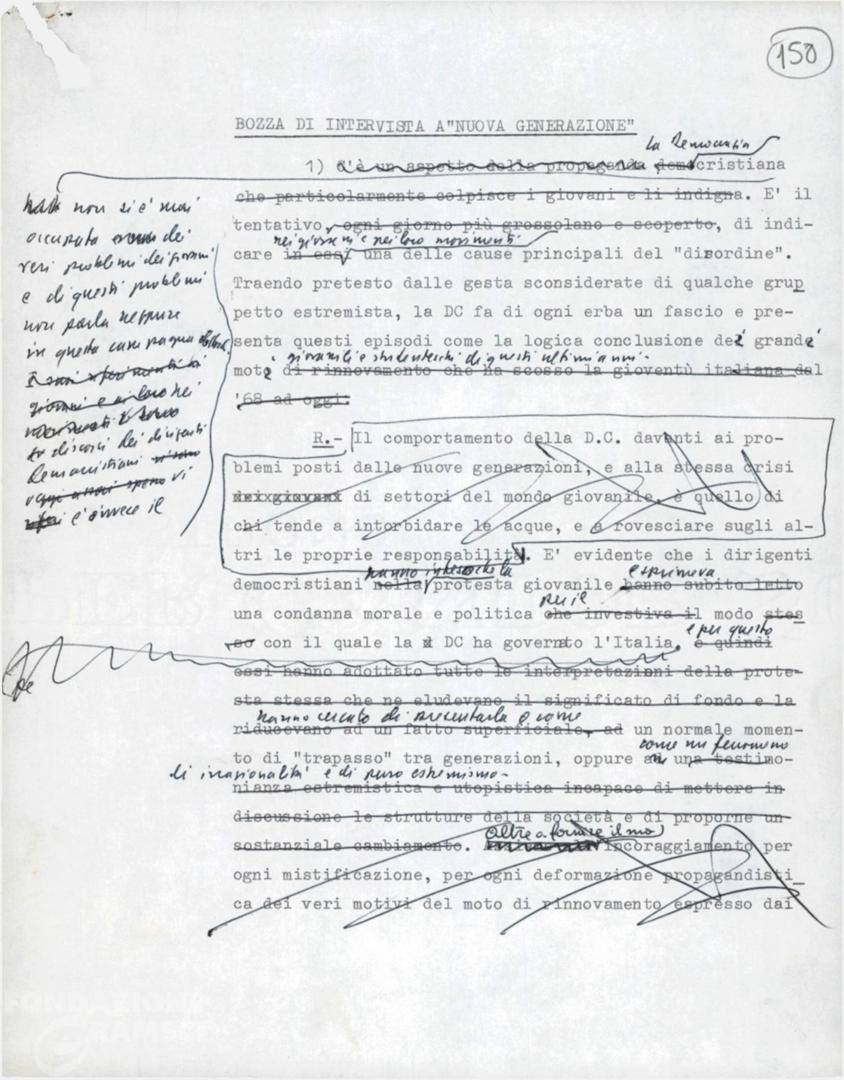 150
BOZZA DI INTERVISTA A "NUOVA GENERAZIONE"
la Democrazia
1) C'è un aspetto della propaganda democristiana
che particolarmente colpisce i giovani e li indigna. E' il
tentativo, ogni giorno più grossolano e scoperto, di indi-
nei giovani e nei loro movimenti
care in essi una delle cause principali del "disordine".
Traendo pretesto dalle gesta sconsiderate di qualche grup
petto estremista, la DC fa di ogni erba un fascio e pre-
senta questi episodi come la logica conclusione dei grandi
giovanili e studenteschi di questi ultimi anni.
moti di rinnovamento che ha scosso la gioventù italiana dal
'68 ad oggi.
non si è mai
occupata dei
veri problemi dei giovani
e di questi problemi
non parla neppure
in questa campagna
discorsi dei dirigenti
democristiani
vi
è invece il
R.- Il comportamento della D.C. davanti ai pro-
blemi posti dalle nuove generazioni, e alla stessa crisi
dei giovani di settori del mondo giovanile, è quello di
chi tende a intorbidare le acque, e a rovesciare sugli al-
tri le proprie responsabilità. E' evidente che i dirigenti
hanno inteso che la esprimeva
democristiani nella protesta giovanile hanno subito letto
per il
una condanna morale e politica che investiva il modo stes
so con il quale la DC ha governato l'Italia, e quindi
e per questo
essi hanno adottato tutte le interpretazioni della prote-
sta stessa che ne eludevano il significato di fondo e la
hanno cercato di presentarla o come
riducevano ad un fatto superficiale, ad un normale momen-
come un fenomeno
to di "trapasso" tra generazioni, oppure a una testimo-
di irrazionalità e di puro estremismo.
nianza estremistica e utopistica incapace di mettere in
discussione le strutture della società e di proporne un
sostanziale cambiamento. incoraggiamento per
oltre a fornire il suo
ogni mistificazione, per ogni deformazione propagandisti_
ca dei veri motivi del moto di rinnovamento espresso dai
FONDAZIONE
GRAMSCI